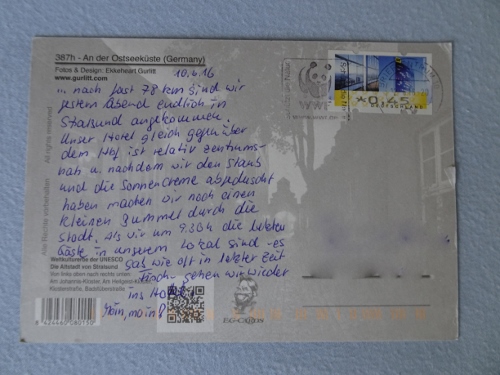 387h - An der Ostseeküste (Germany)
Fotos & Design: Ekkeheart Gurlitt
www.gurlitt.com
10.4.16
... nach fast 78 km sind wir
gestern Abend endlich in
Stralsund angekommen.
Unser Hotel gleich gegenüber
dem Hbf ist relativ zentrums-
nah u nachdem wir den Staub
und die Sonnencreme abgeduscht
haben machen wir noch einen
kleinen Bummel durch die
Stadt. Als wir um 9.30h die letzten
Gäste in unserem Lokal sind - es
gab wie oft in letzter Zeit
Fisch - gehen wir wieder
ins Hotel
Moin, moin!
Alle Rechte vorbehalten
All rights reserved
Weltkulturerbe der UNESCO
Die Altstadt von Stralsund
Von links oben nach rechts unten:
Am Johannis-Kloster, Am Heilgeist-
Klosterstraße, Badstüberstraße
8 424460 080150
EG-CARDS
WWF
*0,45
DEUTSCHLAND